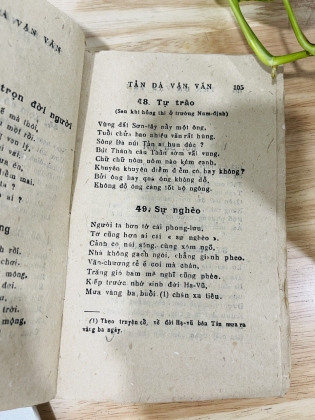 ĐÀ VẬN VĂN
trọn đời người
TẢN ĐÀ VẬN VĂN 105
48. Tự trào
(Sau khi hỏng thi ở trường Nam-định)
Vùng đất Sơn-tây nẩy một ông,
Tuổi chửa bao nhiêu văn rất hùng.
Sông Đà núi Tản ai hun đúc ?
Bút Thánh câu Thần sớm vãi vung.
Chữ chữ nôm nôm nào kém cạnh
Khuyên khuyên điểm điểm có hay không ?
Bởi ông hay quá ông không đỗ,
Không đỗ ông càng tốt bộ ngông.
49. Sự nghèo
Người ta hơn tớ cái phong-lưu,
Tớ cũng hơn ai cái « sự nghèo ».
Cảnh có núi sông, cùng xóm ngõ,
Nhà không gạch ngói, chẳng gianh pheo.
Văn-chương rẻ ế coi mà chán,
Trăng gió ham mê nghĩ cũng phèo.
Kiếp trước nhờ sinh đời Hạ-Vũ,
Mưa vàng ba buổi (1) chán xa tiêu.
(1) Theo truyện cổ, về đời Hạ-vũ bên Tàu mưa ra
vàng ba ngày.